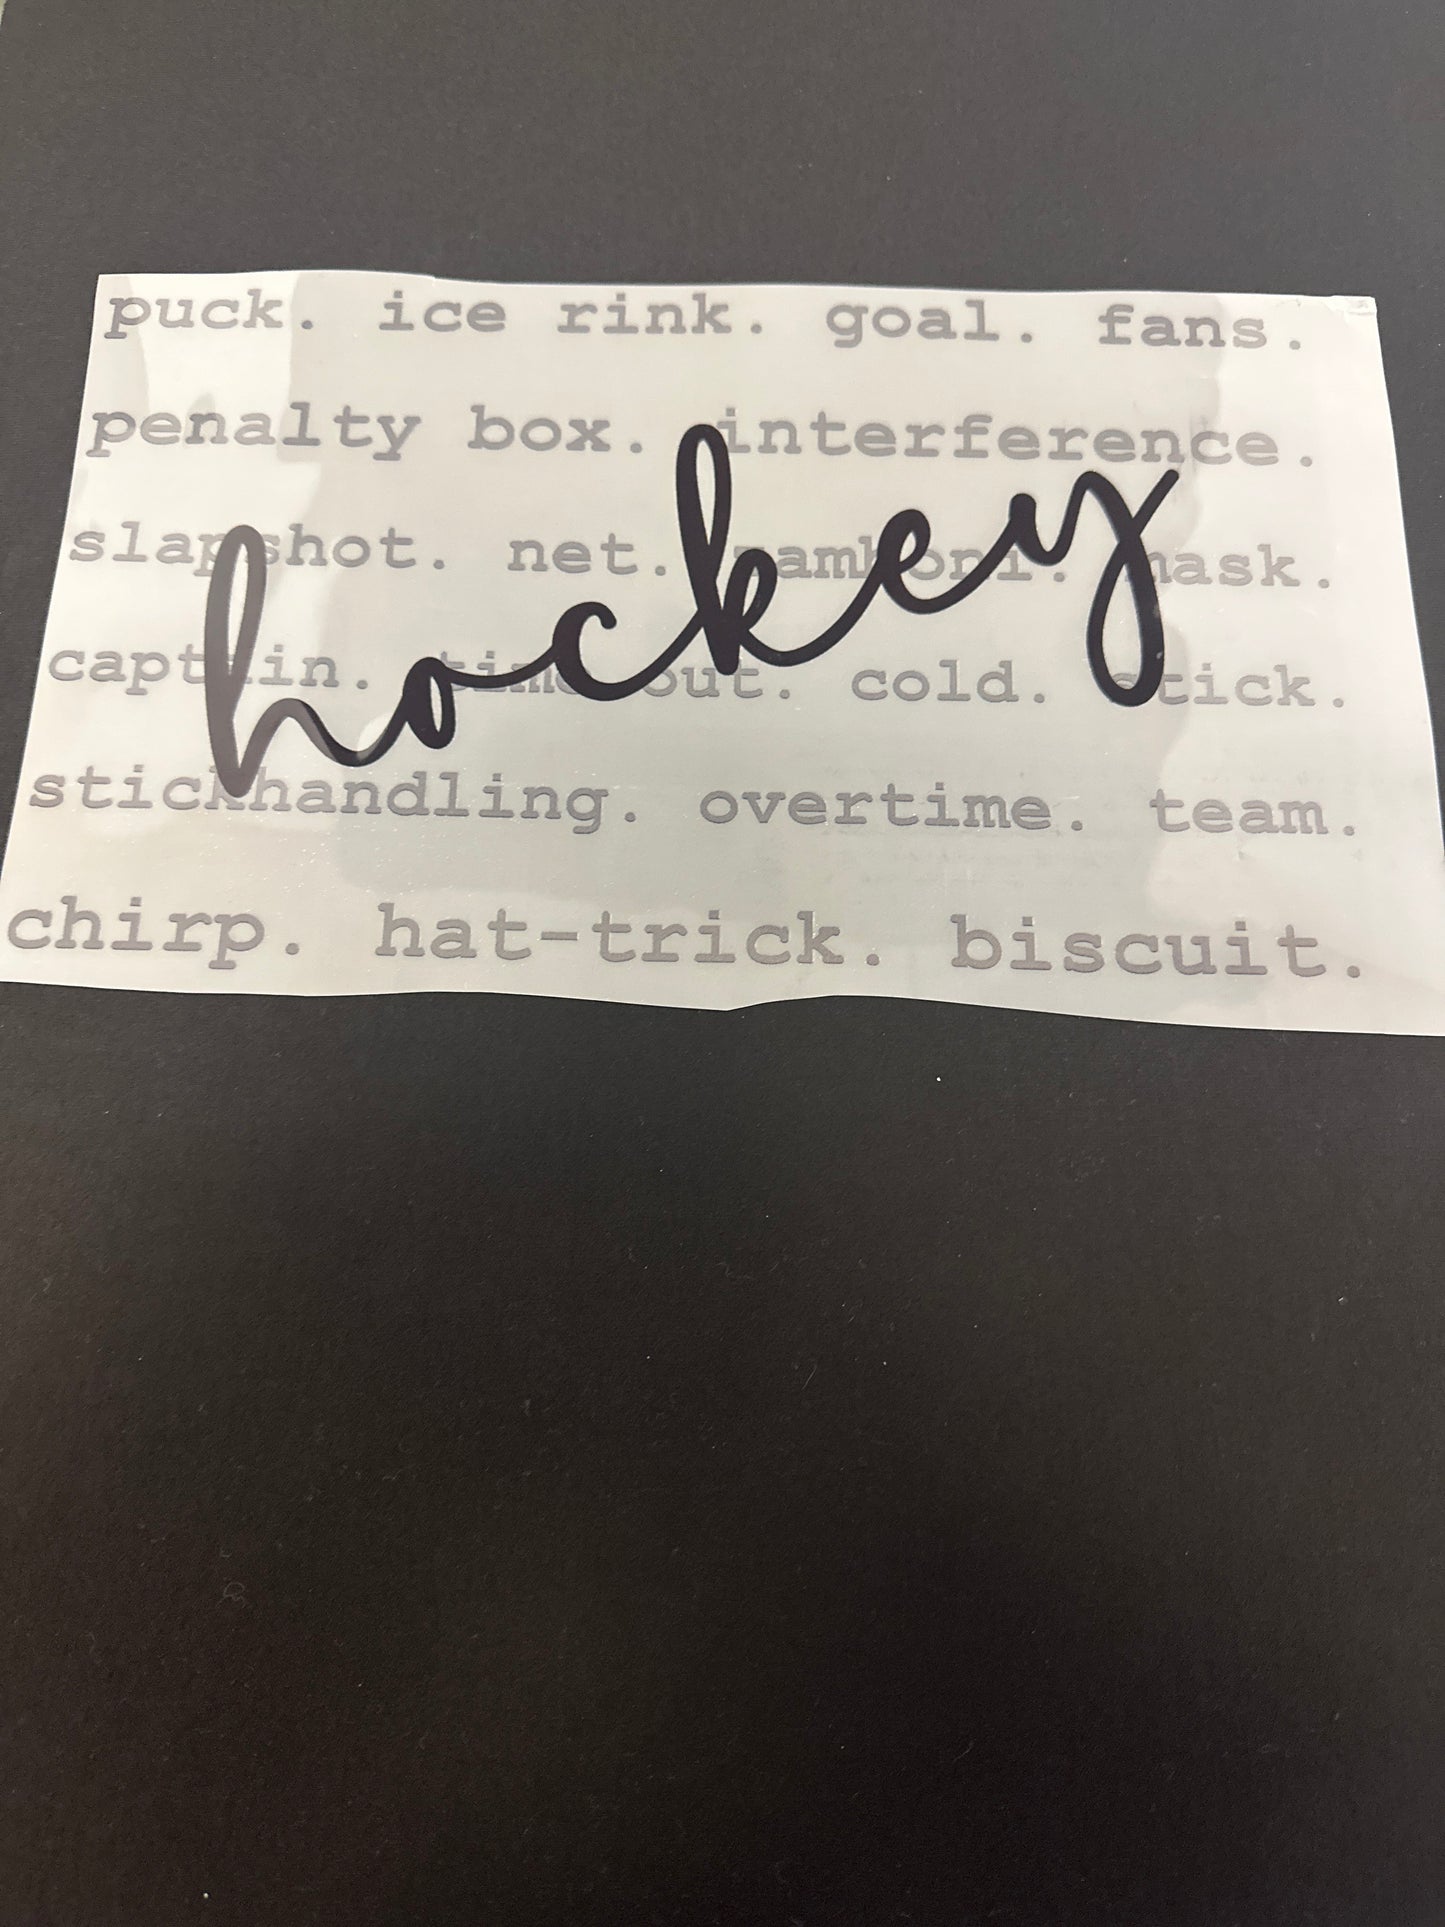 puck. ice rink. goal. fans.
penalty box. interference.
slapshot. net. zamboni. mask.
captain. time out. cold. stick.
stickhandling. overtime. team.
chirp. hat-trick. biscuit.
hockey